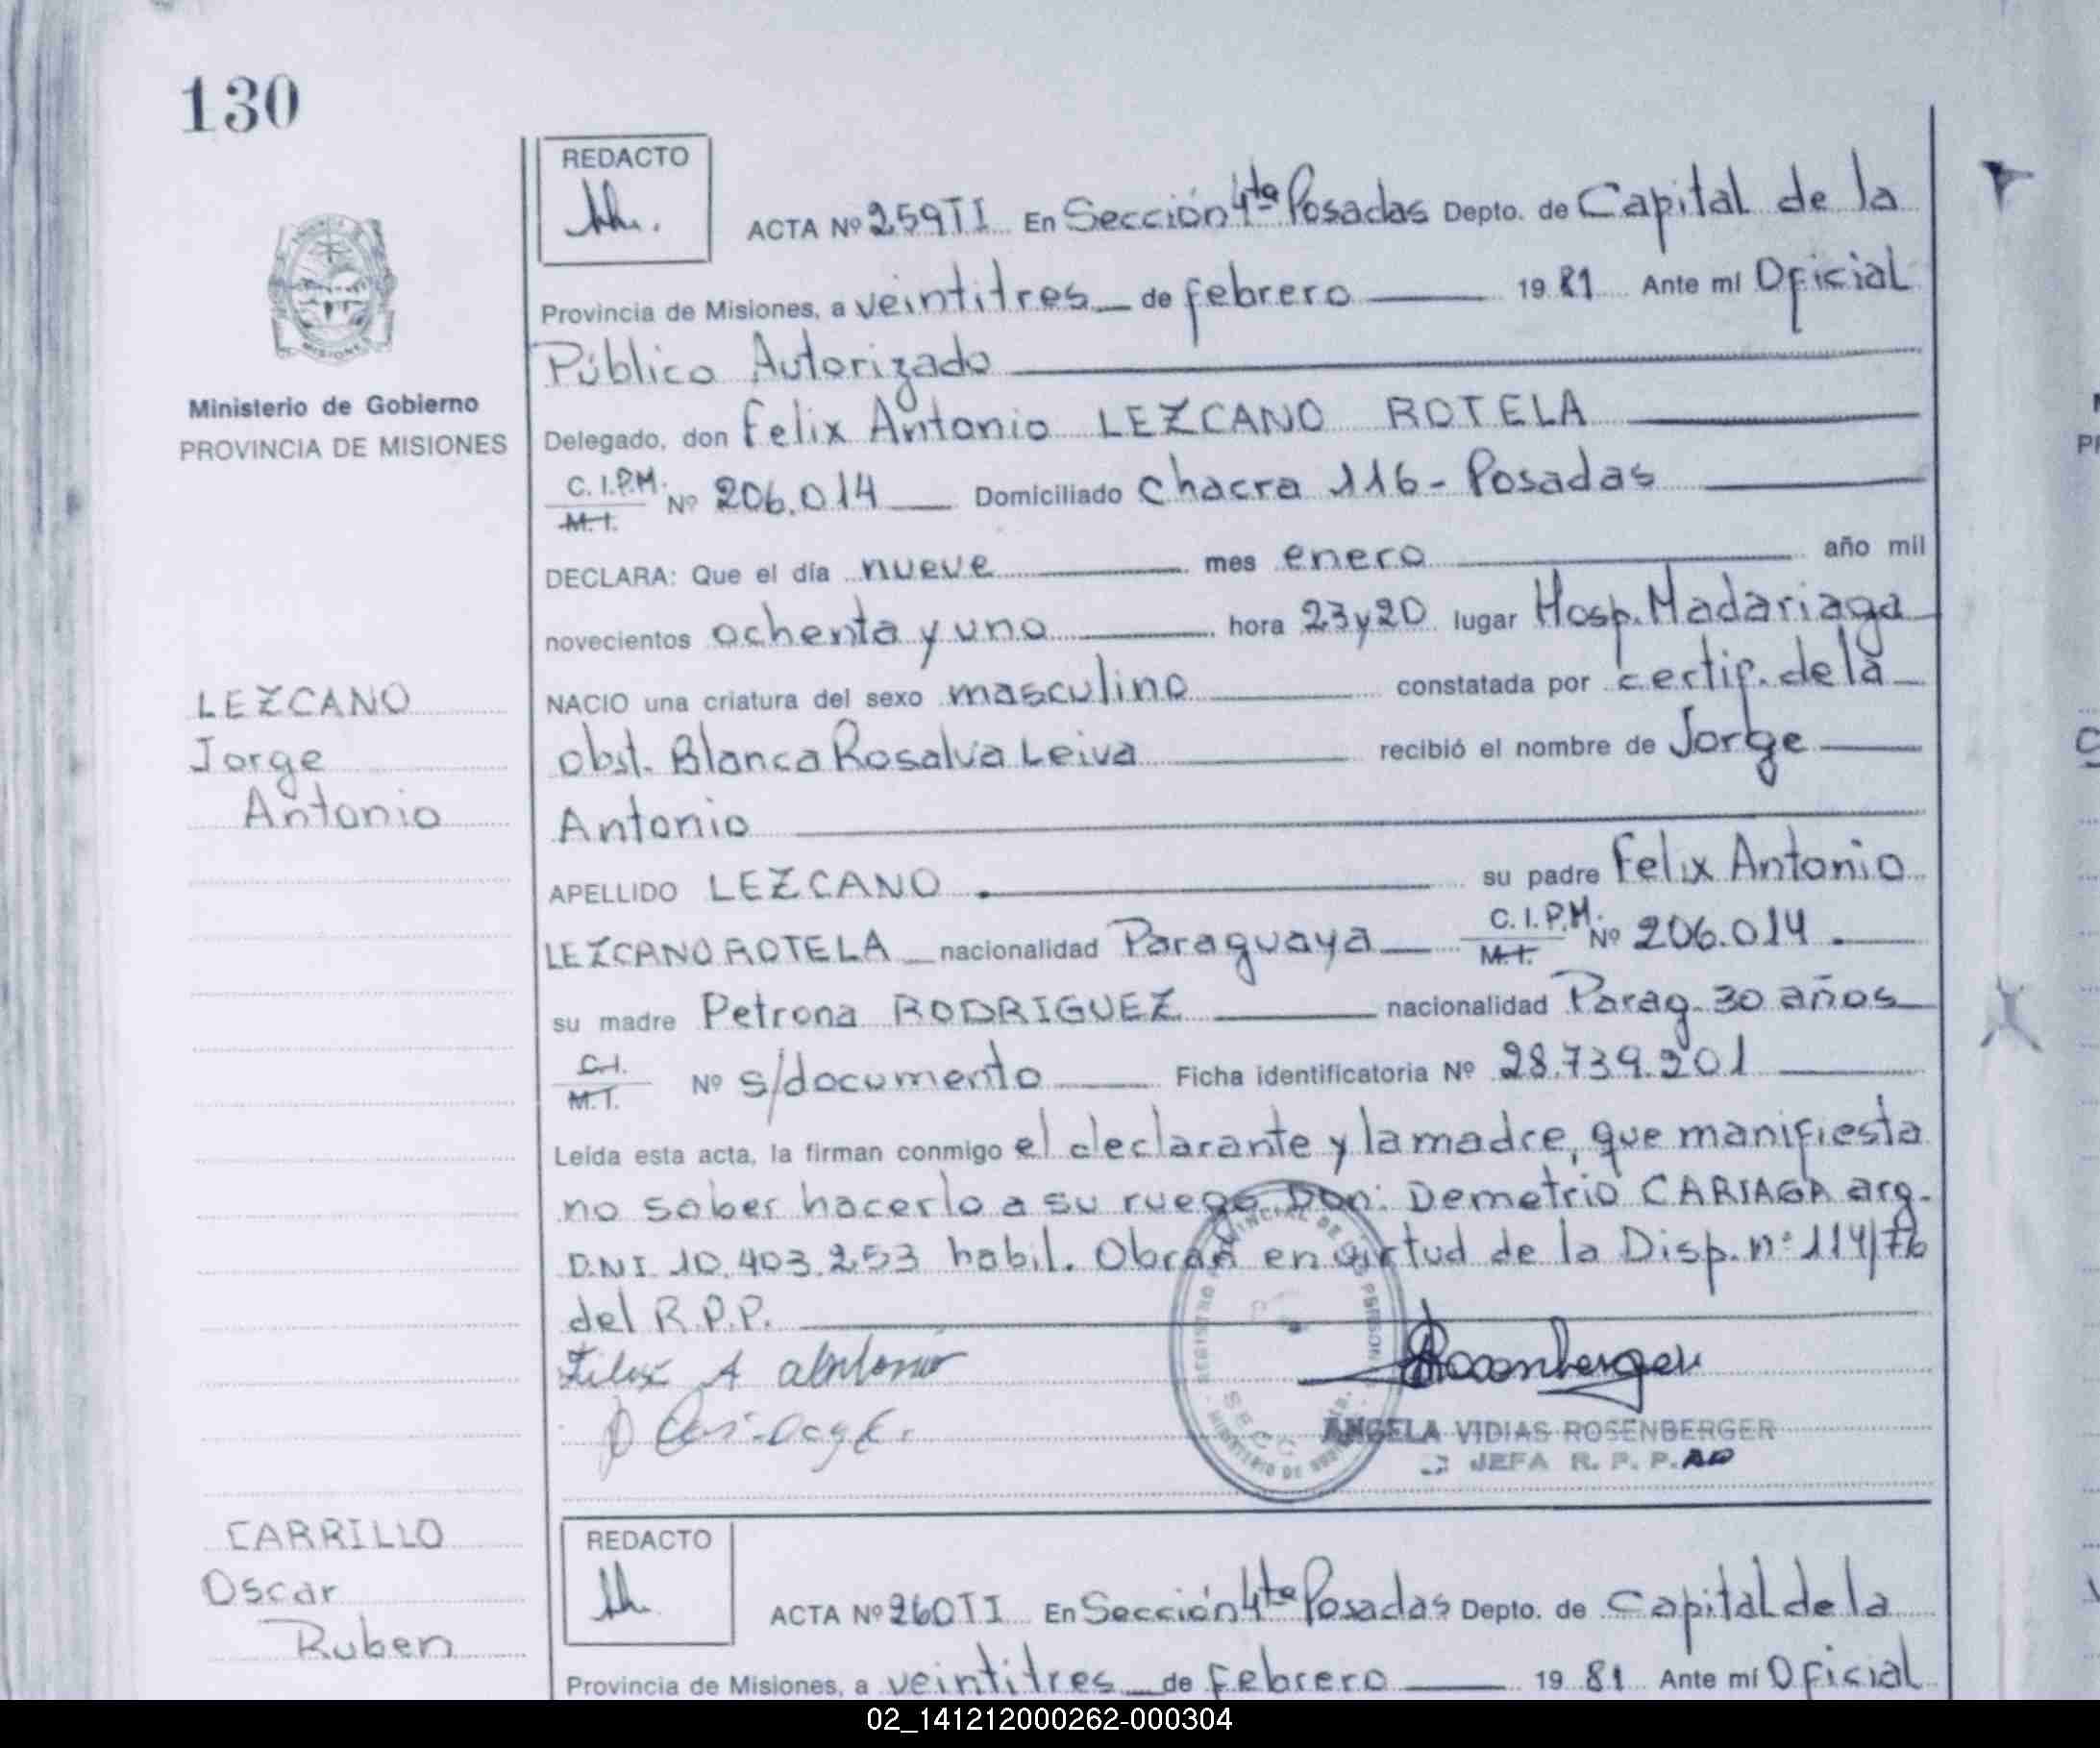 130
REDACTO
ACTA Nº 259TI En Sección 4ta Posadas Depto. de Capital de la
Provincia de Misiones, a veintitres de febrero 1981 Ante mí Oficial
Público Autorizado
Ministerio de Gobierno
PROVINCIA DE MISIONES
Delegado, don Felix Antonio LEZCANO ROTELA
C.I.P.M. M.I. Nº 206.014 Domiciliado Chacra 116 - Posadas
DECLARA: Que el día nueve mes enero año mil
novecientos ochenta y uno hora 23 y 20 lugar Hosp. Madariaga
NACIO una criatura del sexo masculino constatada por certif. de la
obst. Blanca Rosalva Leiva recibió el nombre de Jorge
Antonio
LEZCANO
Jorge
Antonio
APELLIDO LEZCANO su padre Felix Antonio
LEZCANO ROTELA nacionalidad Paraguaya C.I.P.M. M.I. Nº 206.014
su madre Petrona RODRIGUEZ nacionalidad Parag. 30 años
C.I. M.I. Nº s/documento Ficha identificatoria Nº 28.739.201
Leída esta acta, la firman conmigo el declarante y la madre, que manifiesta
no saber hacerlo a su ruego Don: Demetrio CARIAGA arg.
D.N.I 10.403.253 habil. Obran en virtud de la Disp. nº 114/76
del R.P.P.
ANGELA VIDIAS ROSENBERGER
JEFA R. P. P.
CARRILLO
Oscar
Ruben
REDACTO
ACTA Nº 260TI En Sección 4ta Posadas Depto. de Capital de la
Provincia de Misiones, a veintitres de febrero 1981 Ante mí Oficial
02_141212000262-000304